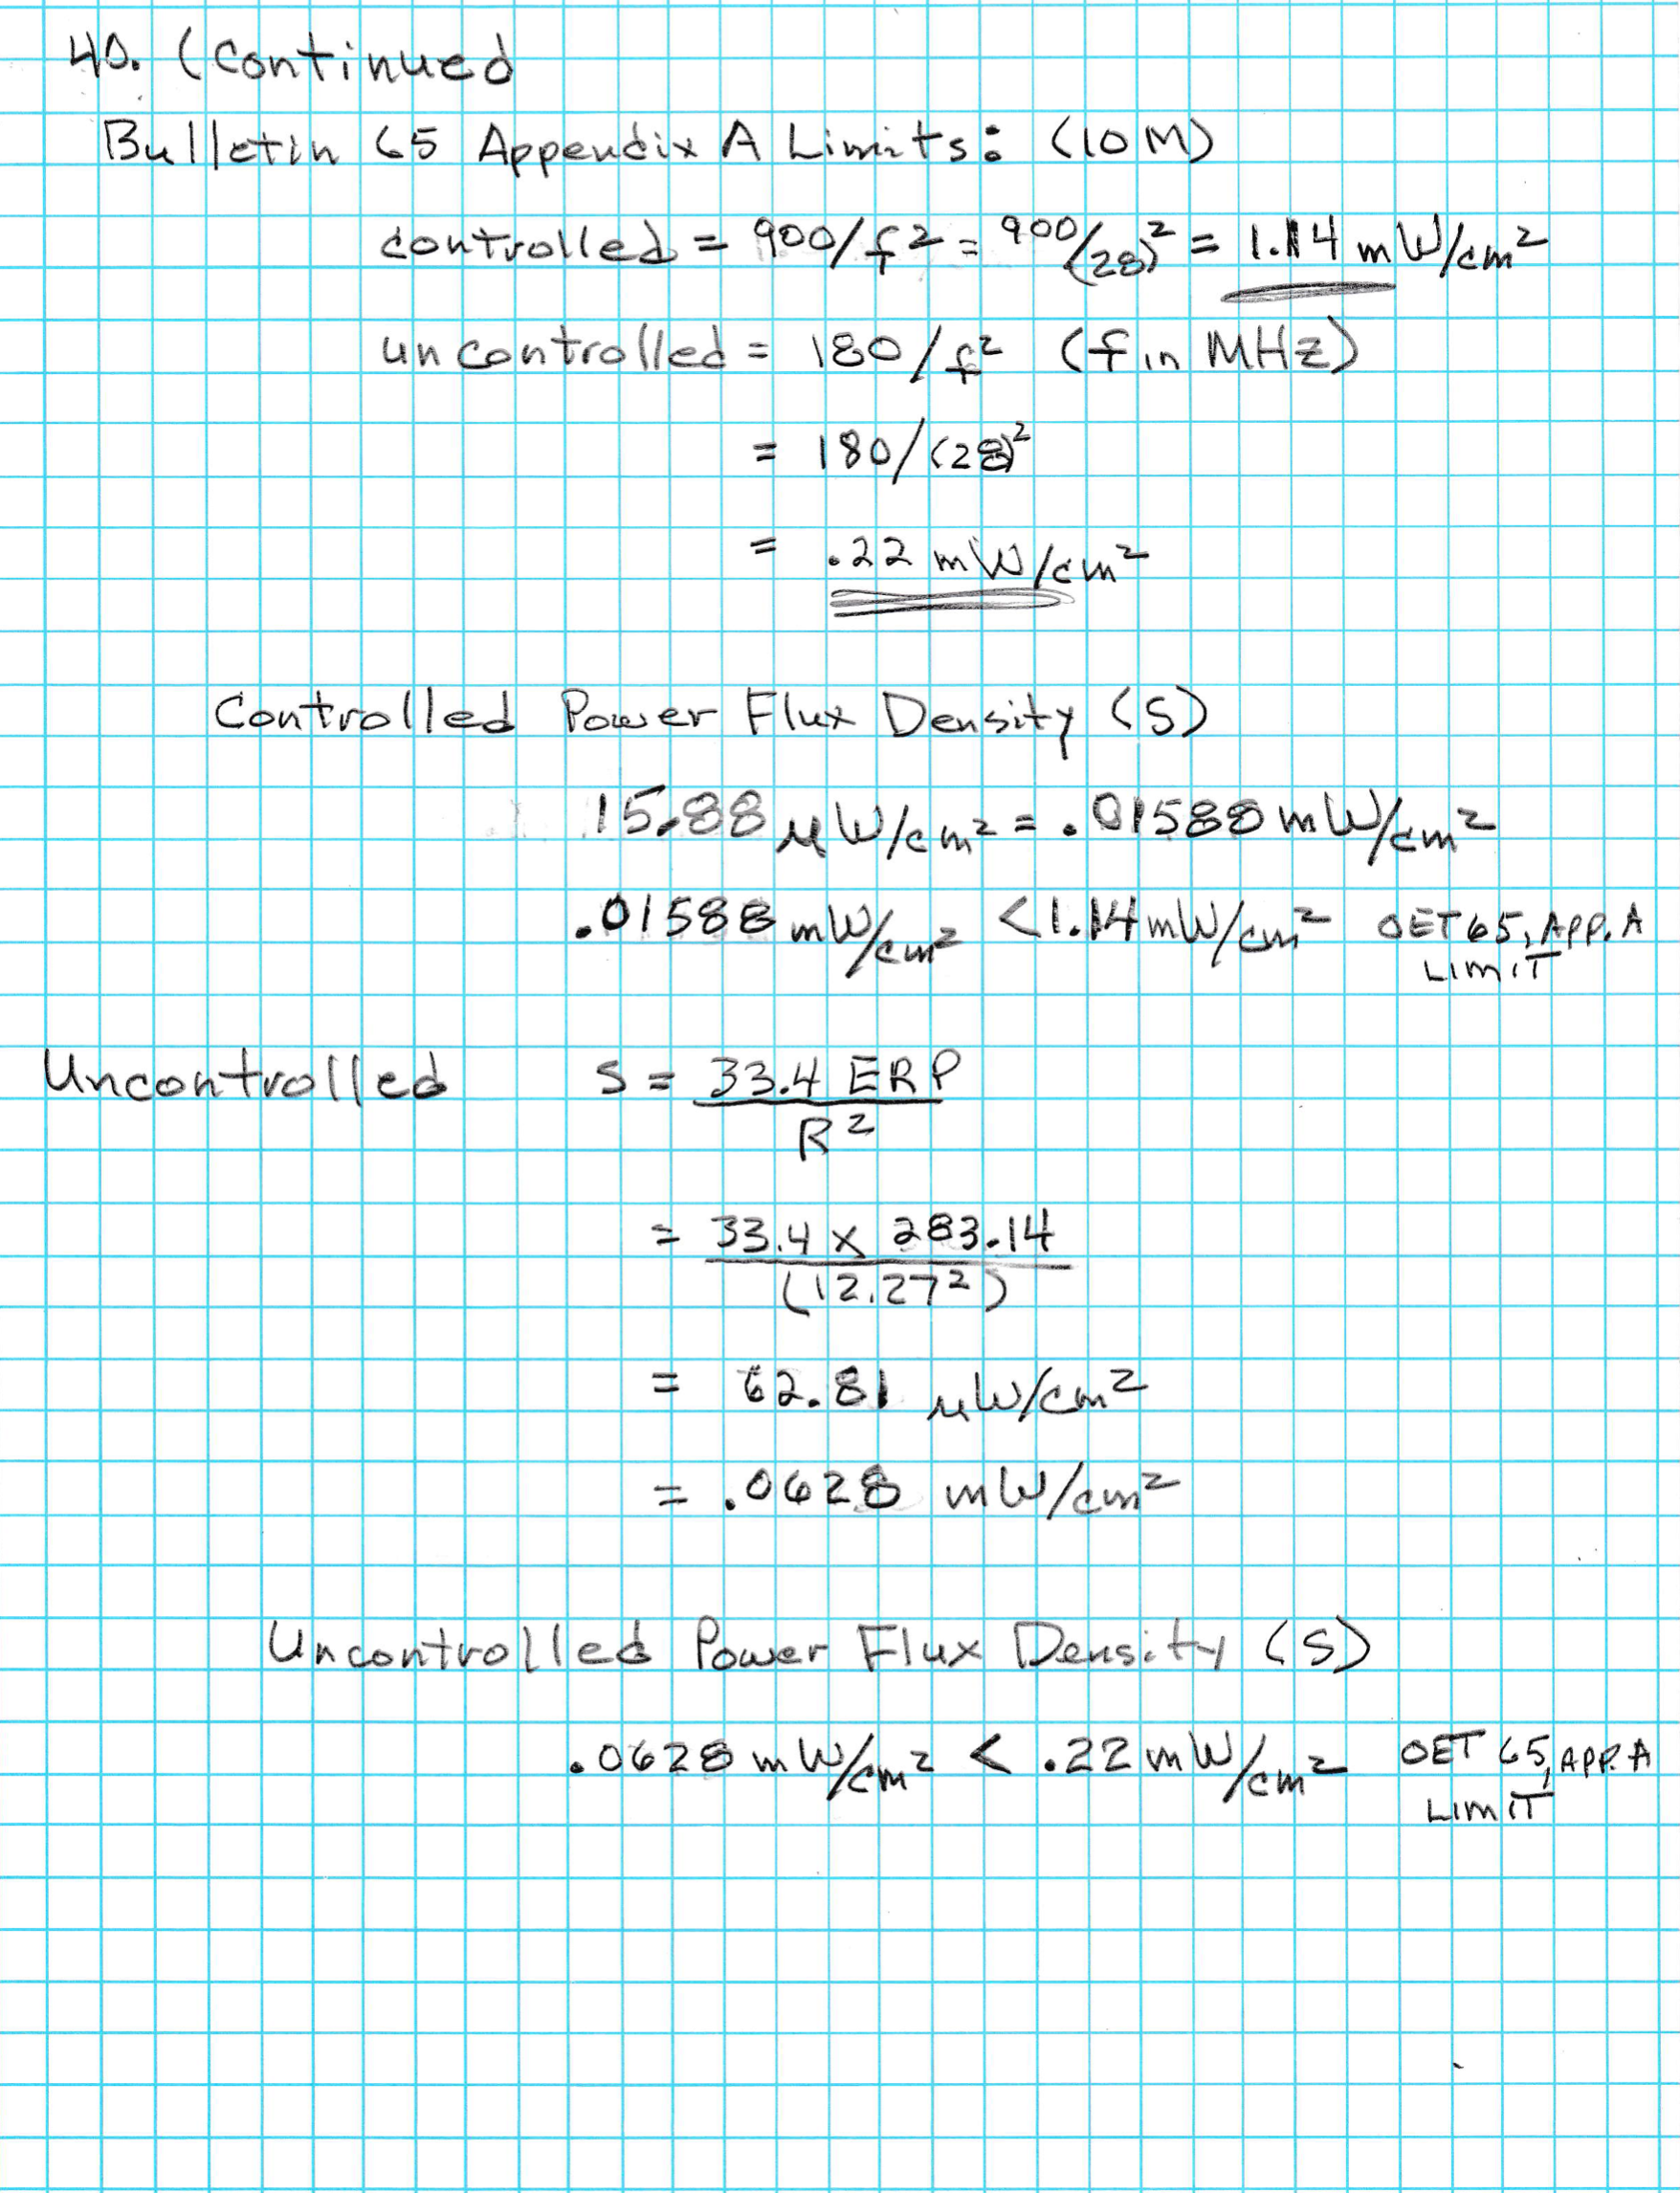 40. (Continued
Bulletin 65 Appendix A Limits: (10 M)
controlled = 900/f² = 900/(28)² = 1.14 mW/cm²
uncontrolled = 180/f² (f in MHz)
= 180/(28)²
= .22 mW/cm²
Controlled Power Flux Density (S)
15.88 μW/cm² = .01588 mW/cm²
.01588 mW/cm² < 1.14 mW/cm² OET 65, APP. A
LIMIT
Uncontrolled S = 33.4 ERP
R²
= 33.4 x 283.14
(12.27²)
= 62.81 μW/cm²
= .0628 mW/cm²
Uncontrolled Power Flux Density (S)
.0628 mW/cm² < .22 mW/cm² OET 65, APP. A
LIMIT